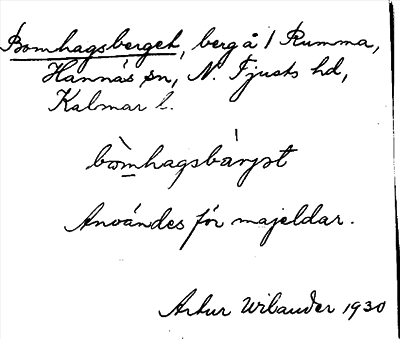 Bomhagsberget, berg å 1 Rumma,
Hannäs sn, N. Tjusts hd,
Kalmar l.
bòmhagsbárjət
Användes för majeldar.
Artur Wilander 1930